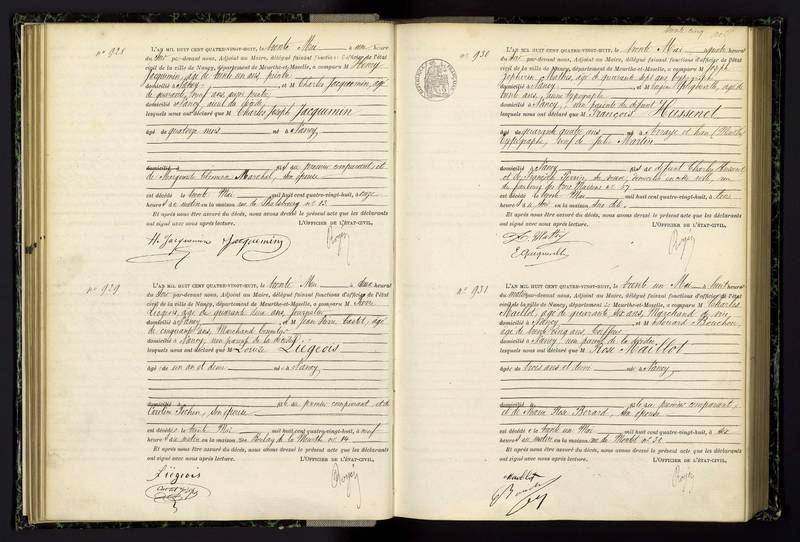 n° 928
L'AN MIL HUIT CENT QUATRE-VINGT-HUIT, le trente Mai à une heure
du soir par-devant nous, Adjoint au Maire, délégué faisant fonctions d'officier de l'état
civil de la ville de Nancy, département de Meurthe-et-Moselle, a comparu M Henry
Jacquemin, âgé de trente un ans, peintre
domicilié à Nancy et M Charles Jacquemin, âgé
de quarante neuf ans
domicilié à Nancy, aïeul du décédé
lesquels nous ont déclaré que M Charles Joseph Jacquemin
âgé de quatorze mois né à Nancy,
domicilié à fils au premier comparant, et
de Marguerite Clémence Marchal, son épouse
est décédé le trente Mai mil huit cent quatre-vingt-huit, à onze
heures du matin en la maison rue de Phalsbourg n° 13
Et après nous être assuré du décès, nous avons dressé le présent acte que les déclarants
ont signé avec nous après lecture. L'OFFICIER DE L'ÉTAT-CIVIL,
H. Jacquemin Jacquemin
n° 929
L'AN MIL HUIT CENT QUATRE-VINGT-HUIT, le trente Mai à deux heures
du soir par-devant nous, Adjoint au Maire, délégué faisant fonctions d'officier de l'état
civil de la ville de Nancy, département de Meurthe-et-Moselle, a comparu M
Liégeois, âgé de quarante deux ans, journalier
domicilié à Nancy et M Jean Pierre Castel, âgé
de cinquante ans, Marchand
domicilié à Nancy, non parent de la décédée
lesquels nous ont déclaré que M Louise Liégeois
âgée de un an et demi née à Nancy,
domicilié à fille au premier comparant, et de
son épouse
est décédée le trente Mai mil huit cent quatre-vingt-huit, à neuf
heures du matin en la maison rue Boulay de la Meurthe n° 14
Et après nous être assuré du décès, nous avons dressé le présent acte que les déclarants
ont signé avec nous après lecture. L'OFFICIER DE L'ÉTAT-CIVIL,
Liégeois
trente cinq
n° 930
L'AN MIL HUIT CENT QUATRE-VINGT-HUIT, le trente Mai à quatre heures
du soir par-devant nous, Adjoint au Maire, délégué faisant fonctions d'officier de l'état
civil de la ville de Nancy, département de Meurthe-et-Moselle, a comparu M Joseph
Zéphirin Mathis, âgé de quarante sept ans, typographe
domicilié à Nancy et M Eugène âgé de
trente ans, aussi typographe
domicilié à Nancy, non parents du défunt
lesquels nous ont déclaré que M François Hussenet
âgé de quarante quatre ans né à Arraye et Han (Meurthe)
typographe, veuf de Julie Martin
domicilié à Nancy fils de défunt Charles Hussenet
et de Françoise
du faubourg des Trois Maisons n° 67
est décédé le trente Mai mil huit cent quatre-vingt-huit, à trois
heures du soir en la maison sus dite.
Et après nous être assuré du décès, nous avons dressé le présent acte que les déclarants
ont signé avec nous après lecture. L'OFFICIER DE L'ÉTAT-CIVIL,
Z. Mathis
n° 931
L'AN MIL HUIT CENT QUATRE-VINGT-HUIT, le trente un Mai à huit heures
du matin par-devant nous, Adjoint au Maire, délégué faisant fonctions d'officier de l'état
civil de la ville de Nancy, département de Meurthe-et-Moselle, a comparu M Charles
Maillot, âgé de quarante six ans, Marchand de vin
domicilié à Nancy et M Edouard Bouchon,
âgé de trente cinq ans, coiffeur
domicilié à Nancy, non parent de la décédée
lesquels nous ont déclaré que M Rose Maillot
âgée de trois ans et demi née à Nancy,
domicilié à fille au premier comparant,
et de Marie Rose Bérard, son épouse
est décédée le trente un Mai mil huit cent quatre-vingt-huit, à six
heures du matin en la maison rue de n° 30
Et après nous être assuré du décès, nous avons dressé le présent acte que les déclarants
ont signé avec nous après lecture. L'OFFICIER DE L'ÉTAT-CIVIL,
Maillot